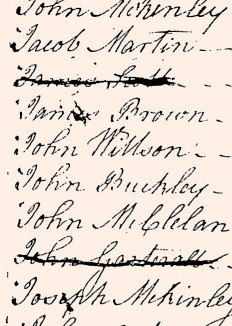 John McKinley
Jacob Martin
James Scott
James Brown
John Willson
John Buckley
John McClelan
John
Joseph McKinley